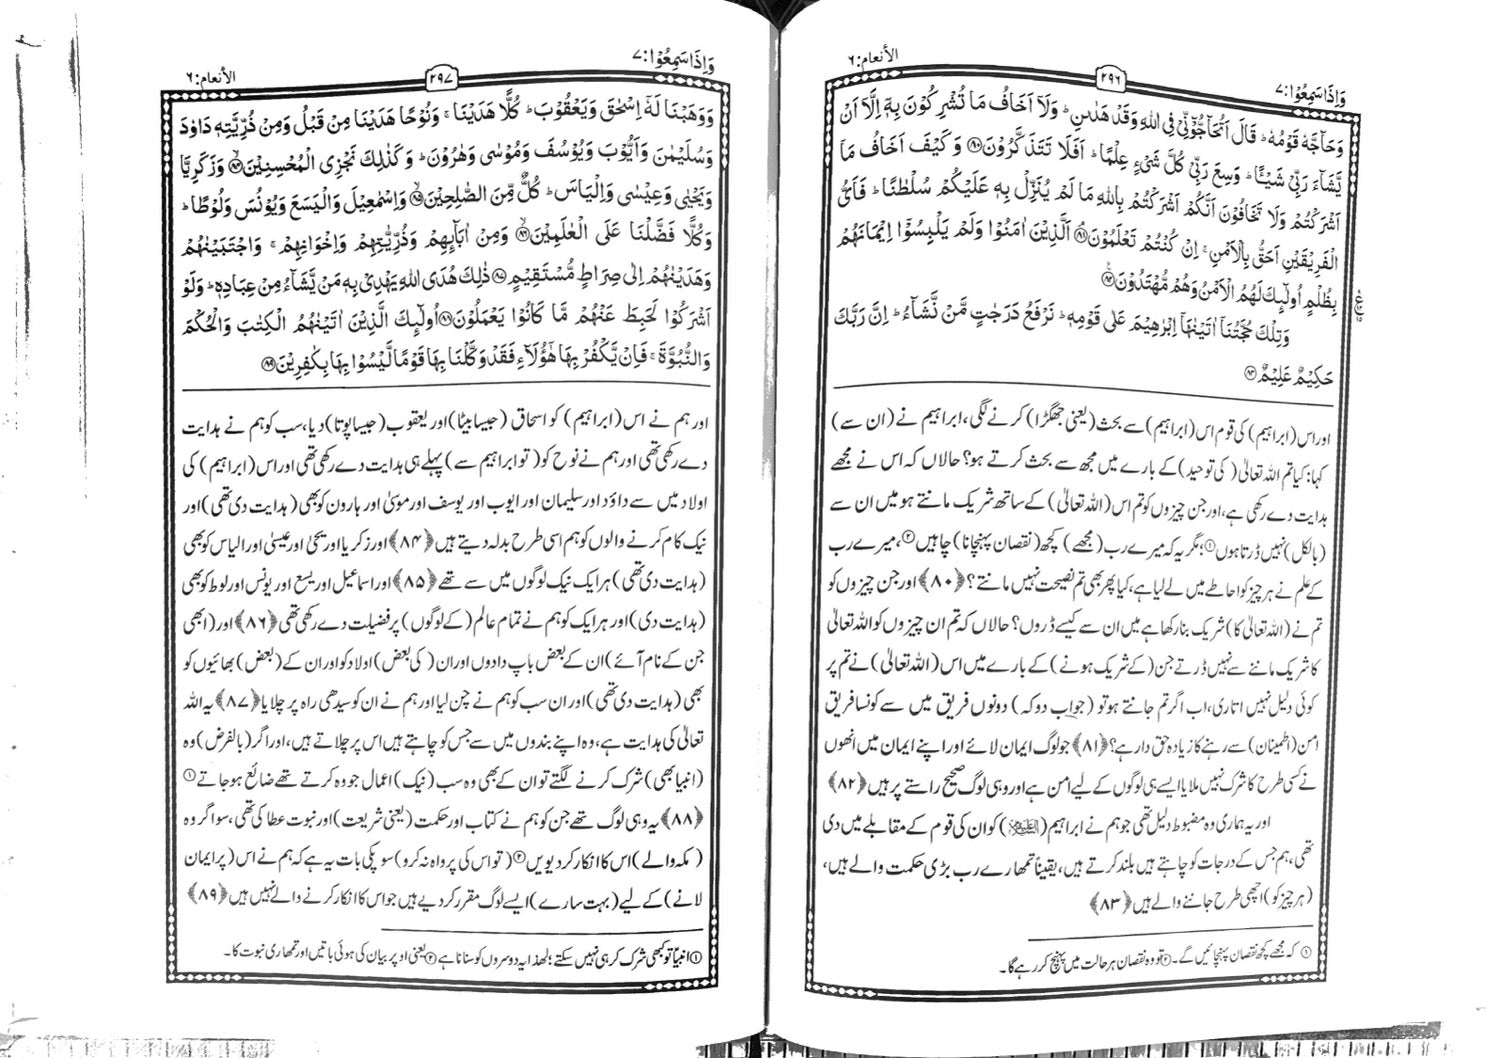 وَاِذَا سَمِعُوْا:٧
٢٩٦
الأنعام:٦
وَحَآجَّهٗ قَوْمُهٗ ؕ قَالَ اَتُحَآجُّوْٓنِّیْ فِی اللهِ وَقَدْ هَدٰىنِ ؕ وَلَآ اَخَافُ مَا تُشْرِكُوْنَ بِهٖٓ اِلَّآ اَنْ
یَّشَآءَ رَبِّیْ شَیْـًٔا ؕ وَسِعَ رَبِّیْ كُلَّ شَیْءٍ عِلْمًا ؕ اَفَلَا تَتَذَكَّرُوْنَ ﴿۸۰﴾ وَكَیْفَ اَخَافُ مَآ
اَشْرَكْتُمْ وَلَا تَخَافُوْنَ اَنَّكُمْ اَشْرَكْتُمْ بِاللهِ مَا لَمْ یُنَزِّلْ بِهٖ عَلَیْكُمْ سُلْطٰنًا ؕ فَاَیُّ
الْفَرِیْقَیْنِ اَحَقُّ بِالْاَمْنِ ۚ اِنْ كُنْتُمْ تَعْلَمُوْنَ ﴿۸۱﴾ اَلَّذِیْنَ اٰمَنُوْا وَلَمْ یَلْبِسُوْٓا اِیْمَانَهُمْ
بِظُلْمٍ اُولٰٓىِٕكَ لَهُمُ الْاَمْنُ وَهُمْ مُّهْتَدُوْنَ ﴿۸۲﴾
وَتِلْكَ حُجَّتُنَآ اٰتَیْنٰهَآ اِبْرٰهِیْمَ عَلٰی قَوْمِهٖ ؕ نَرْفَعُ دَرَجٰتٍ مَّنْ نَّشَآءُ ؕ اِنَّ رَبَّكَ
حَكِیْمٌ عَلِیْمٌ ﴿۸۳﴾
اور اس (ابراہیم) کی قوم اس (ابراہیم) سے بحث (یعنی جھگڑا) کرنے لگی، ابراہیم نے (ان سے)
کہا: کیا تم اللہ تعالیٰ (کی توحید) کے بارے میں مجھ سے بحث کرتے ہو؟ حالاں کہ اس نے مجھے
ہدایت دے رکھی ہے، اور جن چیزوں کو تم اس (اللہ تعالیٰ) کے ساتھ شریک مانتے ہو میں ان سے
(بالکل) نہیں ڈرتا ہوں①؛ مگر یہ کہ میرے رب (مجھے) کچھ (نقصان پہنچانا) چاہیں②، میرے رب
کے علم نے ہر چیز کو احاطے میں لے لیا ہے، کیا پھر بھی تم نصیحت نہیں مانتے؟ ﴿۸۰﴾ اور جن چیزوں کو
تم نے (اللہ تعالیٰ کا) شریک بنا رکھا ہے میں ان سے کیسے ڈروں؟ حالاں کہ تم ان چیزوں کو اللہ تعالیٰ
کا شریک ماننے سے نہیں ڈرتے جن (کے شریک ہونے) کے بارے میں اس (اللہ تعالیٰ) نے تم پر
کوئی دلیل نہیں اتاری، اب اگر تم جانتے ہو تو (جواب دو کہ) دونوں فریق میں سے کونسا فریق
امن (اطمینان) سے رہنے کا زیادہ حق دار ہے؟ ﴿۸۱﴾ جو لوگ ایمان لائے اور اپنے ایمان میں انھوں
نے کسی طرح کا شرک نہیں ملایا ایسے ہی لوگوں کے لیے امن ہے اور وہی لوگ صحیح راستے پر ہیں ﴿۸۲﴾
اور یہ ہماری وہ مضبوط دلیل تھی جو ہم نے ابراہیم (علیہ السلام) کو ان کی قوم کے مقابلے میں دی
تھی، ہم جس کے درجات کو چاہتے ہیں بلند کرتے ہیں، یقینا تمھارے رب بڑی حکمت والے ہیں،
(ہر چیز کو) اچھی طرح جاننے والے ہیں ﴿۸۳﴾
① کہ مجھے کچھ نقصان پہنچائیں گے۔ ② تو وہ نقصان ہر حالت میں پہنچ کر رہے گا۔
وَاِذَا سَمِعُوْا:٧
٢٩٧
الأنعام:٦
وَوَهَبْنَا لَهٗٓ اِسْحٰقَ وَیَعْقُوْبَ ؕ كُلًّا هَدَیْنَا ۚ وَنُوْحًا هَدَیْنَا مِنْ قَبْلُ وَمِنْ ذُرِّیَّتِهٖ دَاوٗدَ
وَسُلَیْمٰنَ وَاَیُّوْبَ وَیُوْسُفَ وَمُوْسٰی وَهٰرُوْنَ ؕ وَكَذٰلِكَ نَجْزِی الْمُحْسِنِیْنَ ﴿۸۴﴾ وَزَكَرِیَّا
وَیَحْیٰی وَعِیْسٰی وَاِلْیَاسَ ؕ كُلٌّ مِّنَ الصّٰلِحِیْنَ ﴿۸۵﴾ وَاِسْمٰعِیْلَ وَالْیَسَعَ وَیُوْنُسَ وَلُوْطًا ؕ
وَكُلًّا فَضَّلْنَا عَلَی الْعٰلَمِیْنَ ﴿۸۶﴾ وَمِنْ اٰبَآىِٕهِمْ وَذُرِّیّٰتِهِمْ وَاِخْوَانِهِمْ ۚ وَاجْتَبَیْنٰهُمْ
وَهَدَیْنٰهُمْ اِلٰی صِرَاطٍ مُّسْتَقِیْمٍ ﴿۸۷﴾ ذٰلِكَ هُدَی اللهِ یَهْدِیْ بِهٖ مَنْ یَّشَآءُ مِنْ عِبَادِهٖ ؕ وَلَوْ
اَشْرَكُوْا لَحَبِطَ عَنْهُمْ مَّا كَانُوْا یَعْمَلُوْنَ ﴿۸۸﴾ اُولٰٓىِٕكَ الَّذِیْنَ اٰتَیْنٰهُمُ الْكِتٰبَ وَالْحُكْمَ
وَالنُّبُوَّةَ ۚ فَاِنْ یَّكْفُرْ بِهَا هٰٓؤُلَآءِ فَقَدْ وَكَّلْنَا بِهَا قَوْمًا لَّیْسُوْا بِهَا بِكٰفِرِیْنَ ﴿۸۹﴾
اور ہم نے اس (ابراہیم) کو اسحاق (جیسا بیٹا) اور یعقوب (جیسا پوتا) دیا، سب کو ہم نے ہدایت
دے رکھی تھی اور ہم نے نوح کو (تو ابراہیم سے) پہلے ہی ہدایت دے رکھی تھی اور اس (ابراہیم) کی
اولاد میں سے داؤد اور سلیمان اور ایوب اور یوسف اور موسیٰ اور ہارون کو بھی (ہدایت دی تھی) اور
نیک کام کرنے والوں کو ہم اسی طرح بدلہ دیتے ہیں ﴿۸۴﴾ اور زکریا اور یحیٰ اور عیسیٰ اور الیاس کو بھی
(ہدایت دی تھی) ہر ایک نیک لوگوں میں سے تھے ﴿۸۵﴾ اور اسماعیل اور یسع اور یونس اور لوط کو بھی
(ہدایت دی) اور ہر ایک کو ہم نے تمام عالم (کے لوگوں) پر فضیلت دے رکھی تھی ﴿۸۶﴾ اور (ابھی
جن کے نام آئے) ان کے بعض باپ دادوں اور ان (کی بعض) اولاد کو اور ان کے (بعض) بھائیوں کو
بھی (ہدایت دی تھی) اور ان سب کو ہم نے چن لیا اور ہم نے ان کو سیدھی راہ پر چلایا ﴿۸۷﴾ یہ اللہ
تعالیٰ کی ہدایت ہے، وہ اپنے بندوں میں سے جس کو چاہتے ہیں اس پر چلاتے ہیں، اور اگر (بالفرض) وہ
(انبیا بھی) شرک کرنے لگتے تو ان کے بھی وہ سب (نیک) اعمال جو وہ کرتے تھے ضائع ہو جاتے①
﴿۸۸﴾ یہ وہی لوگ تھے جن کو ہم نے کتاب اور حکمت (یعنی شریعت) اور نبوت عطا کی تھی، سو اگر وہ
(مکہ والے) اس کا انکار کر دیویں② (تو اس کی پرواہ نہ کرو) سو پکی بات یہ ہے کہ ہم نے اس (پر ایمان
لانے) کے لیے (بہت سارے) ایسے لوگ مقرر کر دیے ہیں جو اس کا انکار کرنے والے نہیں ہیں ﴿۸۹﴾
① انبیا تو کبھی شرک کر ہی نہیں سکتے؛ لھذا یہ دوسروں کو سنانا ہے ② یعنی اوپر بیان کی ہوئی باتیں اور تمھاری نبوت کا۔